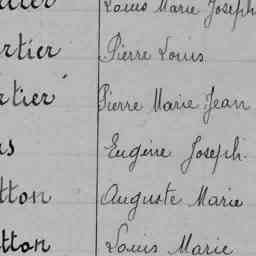 Louis Marie Joseph
rtier Pierre Louis
rtier Pierre Marie Jean
s Eugène Joseph
tton Auguste Marie
tton Louis Marie